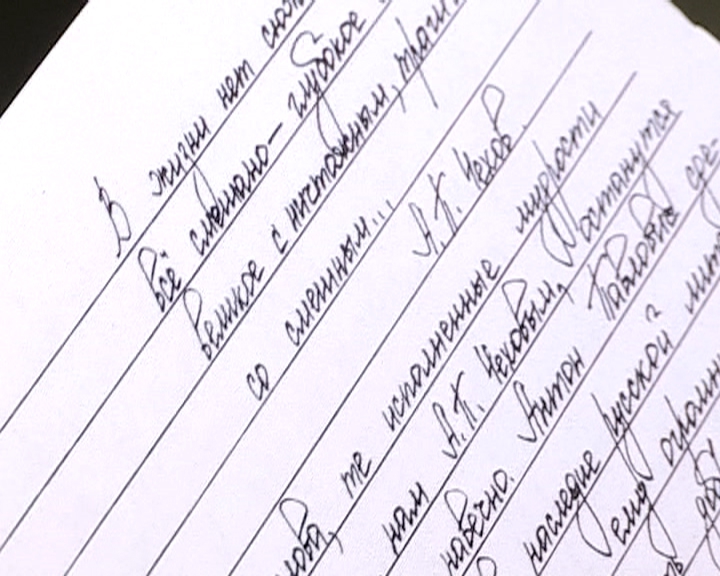 В жизни нет
Всё смешано – глубокое
великое с ничтожным,
со смешным...
А.П. Чехов.
те исполненные мудрости
нам А.П. Чеховым, останутся
навечно. Антон Павлович
наследие русской
ему